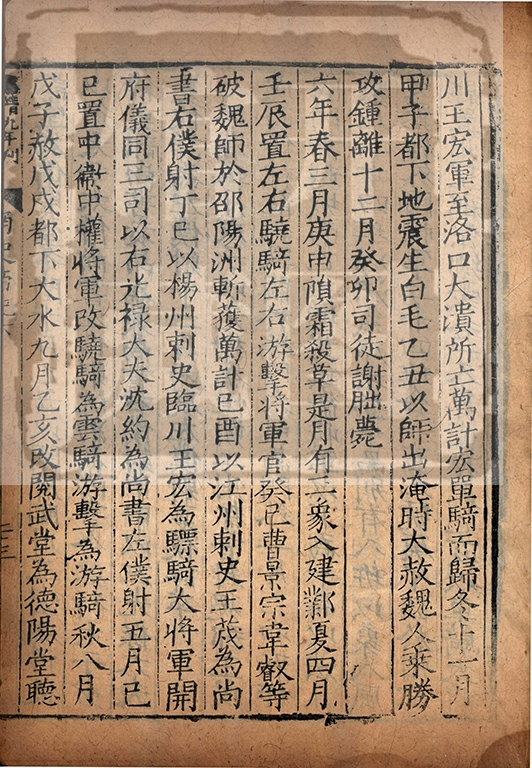 川王宏軍至洛口大潰所亡萬計宏單騎而歸冬十一月
甲子都下地震生白毛乙丑以師出淹時大赦魏人乘勝
攻鍾離十二月癸卯司徒謝朏薨
六年春三月庚申隕霜殺草是月有三象入建鄴夏四月
壬辰置左右驍騎左右游擊將軍官癸巳曹景宗韋叡等
破魏師於邵陽洲斬獲萬計己酉以江州刺史王茂為尚
書右僕射丁巳以楊州刺史臨川王宏為驃騎大將軍開
府儀同三司以右光禄大夫沈約為尚書左僕射五月己
巳置中衛中權將軍改驍騎為雲騎游擊為游騎秋八月
戊子赦戊戌都下大水九月乙亥改閱武堂為德陽堂聽